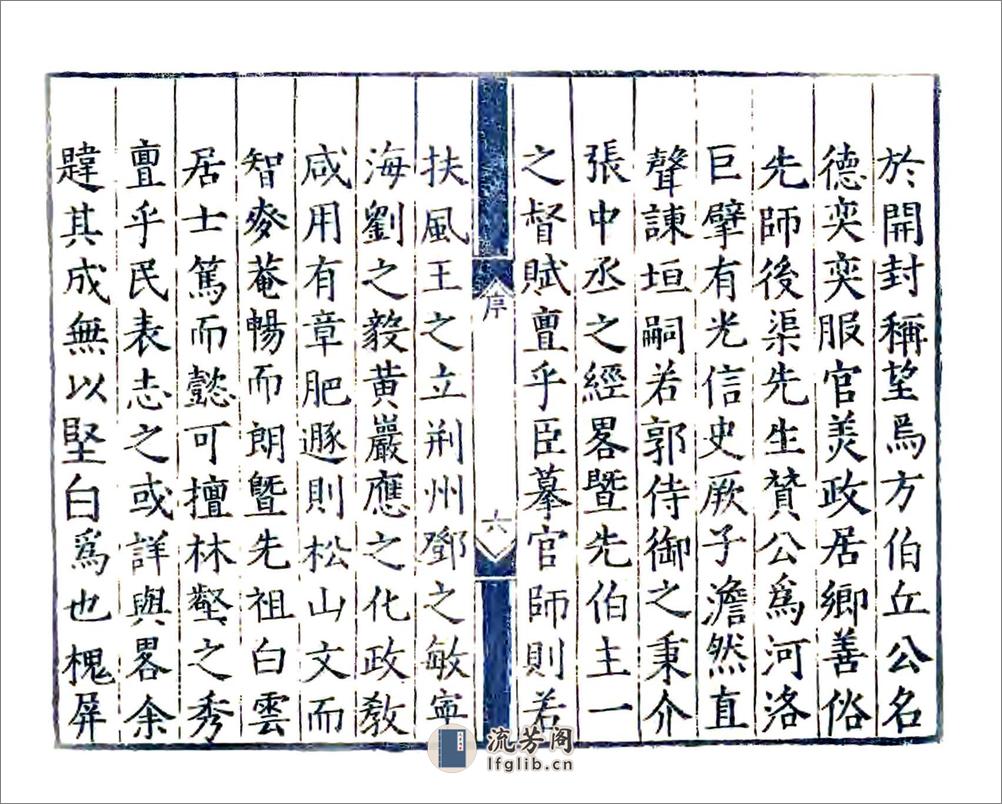 於開封稱望爲方伯丘公名
德奕奕服官羙政居鄉善俗
先師後渠先生贊公爲河洛
巨擘有光信史厥子澹然直
聲諌垣嗣若郭侍御之秉介
張中丞之經畧暨先伯主一
之督賦亶乎臣摹官師則若
序
六
扶風王之立荆州鄧之敏寧
海劉之毅黄巖應之化政敎
咸用有章肥遯則松山文而
智麥菴暢而朗曁先祖白雲
居士篤而懿可擅林壑之秀
亶乎民表志之或詳與畧余
韙其成無以堅白爲也槐屏
流芳阁
lfglib.cn